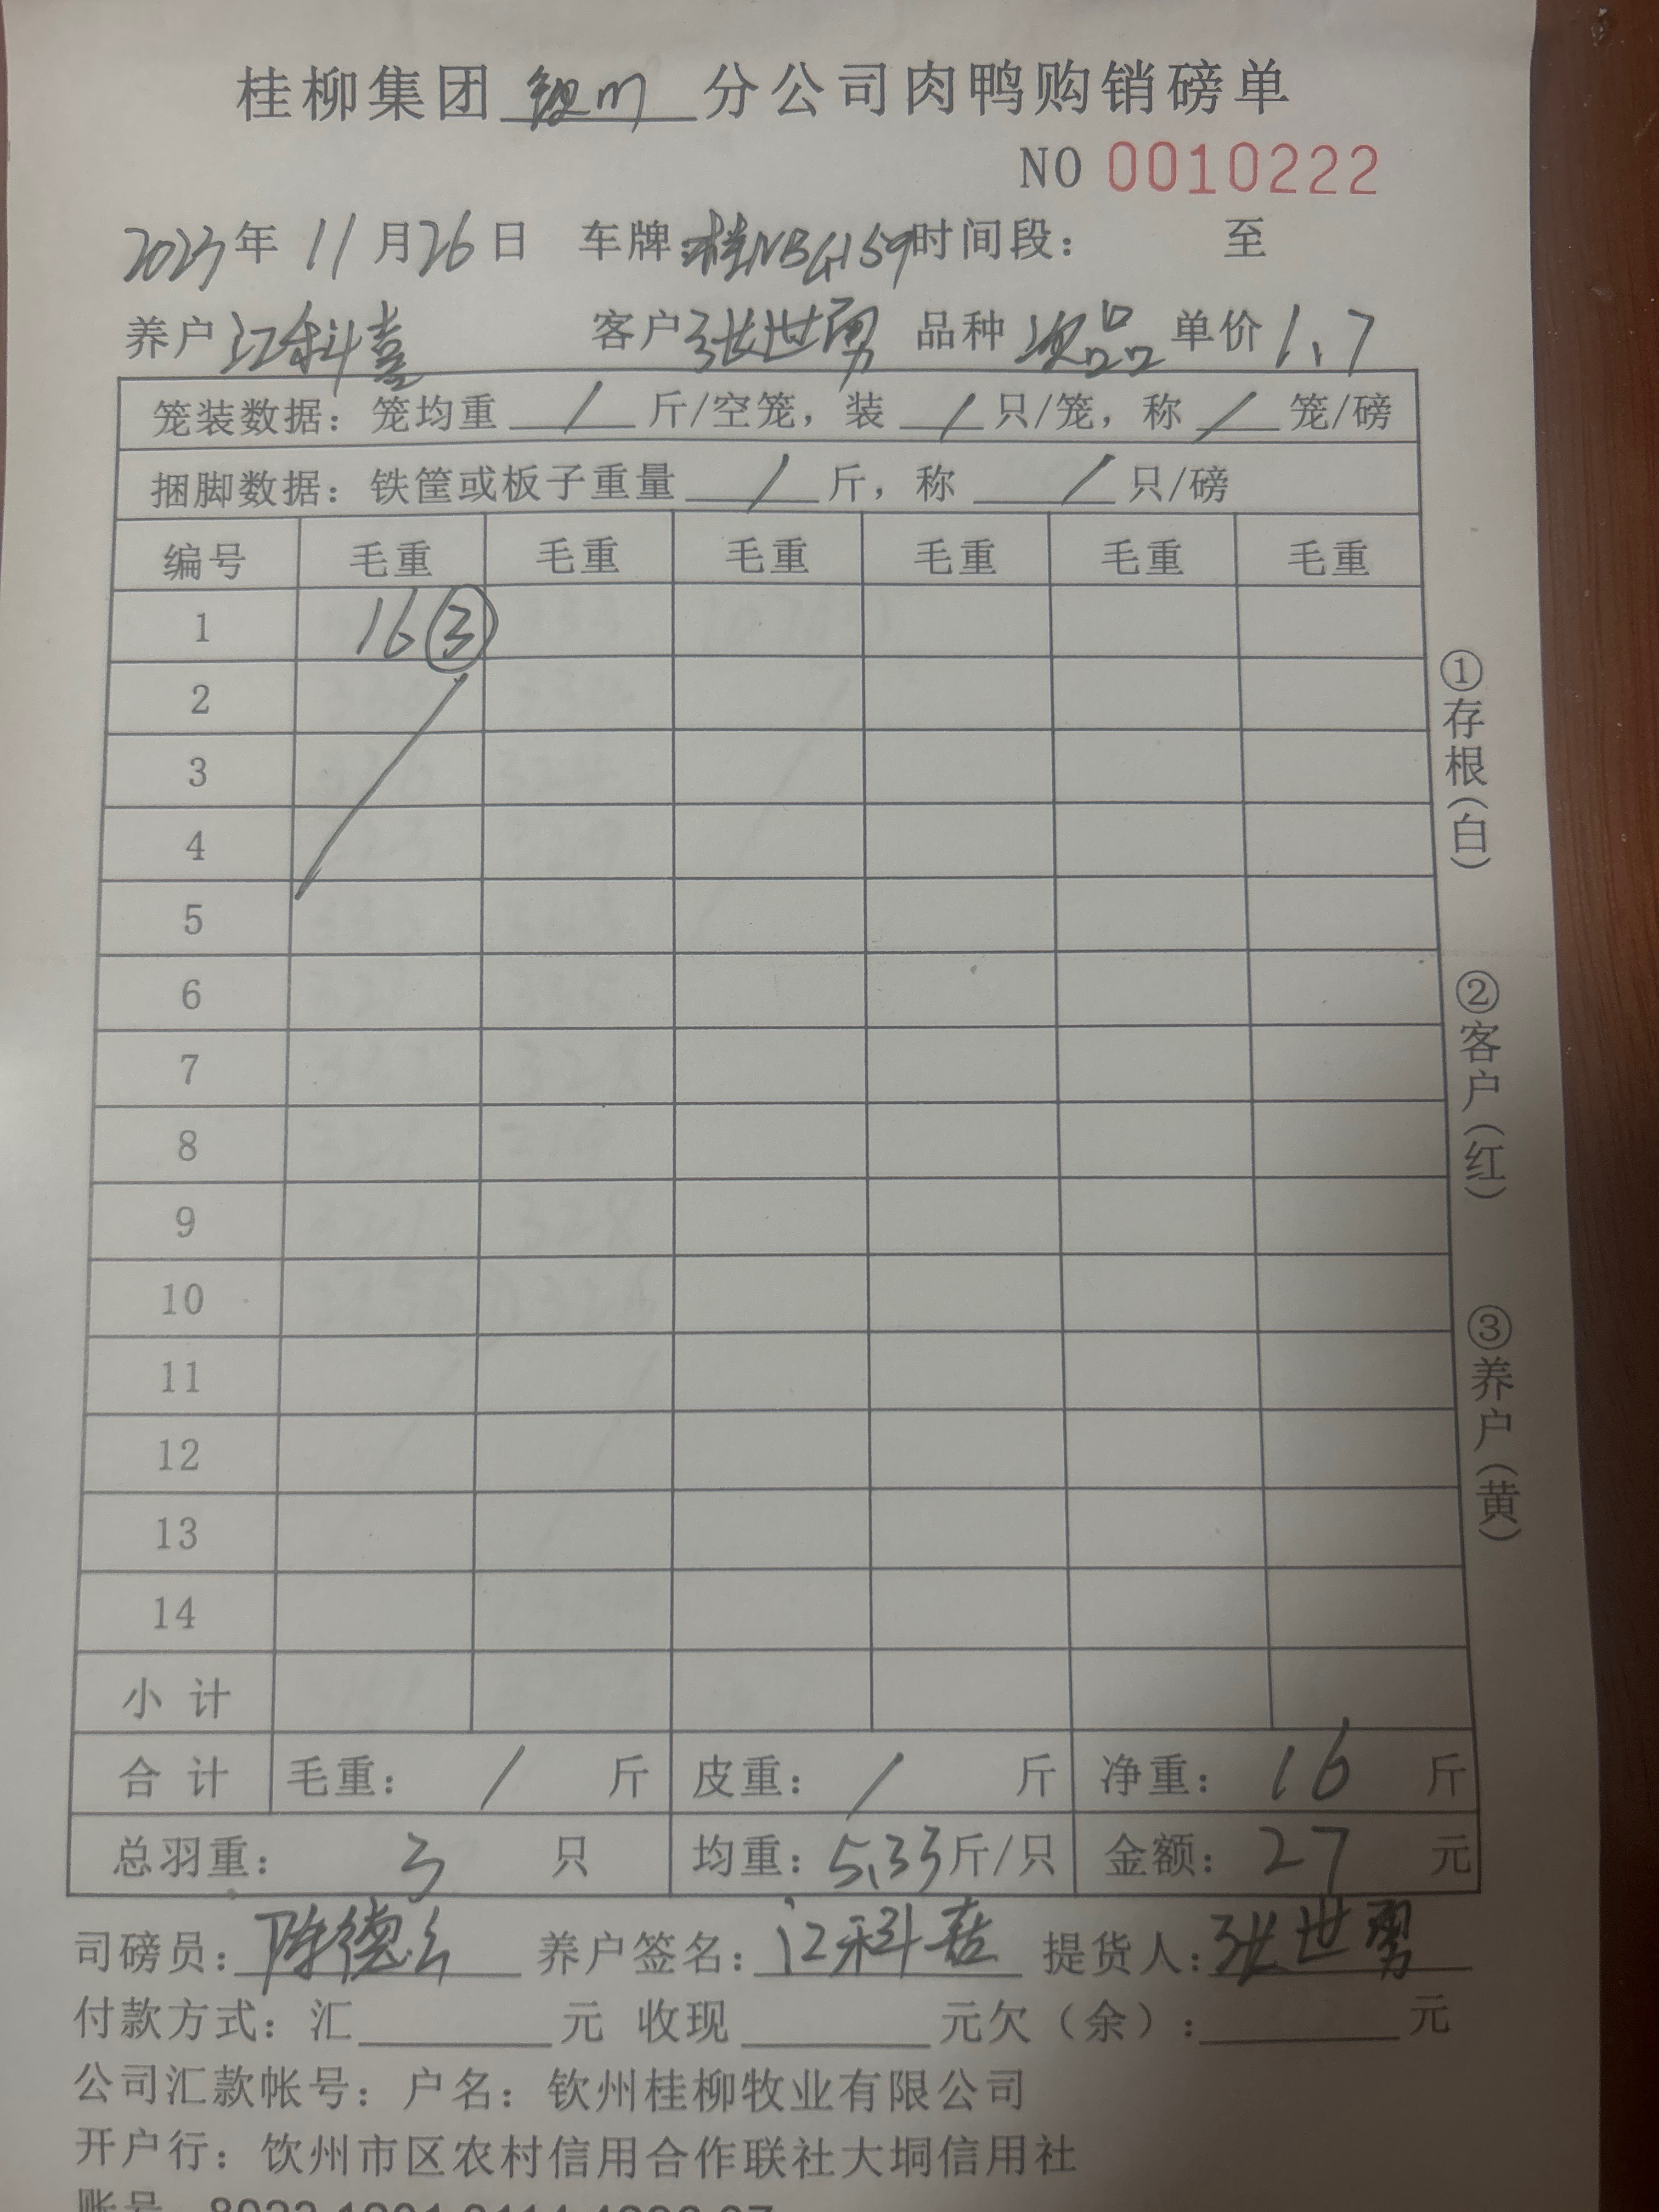 桂柳集团 钦州 分公司肉鸭购销磅单
NO 0010222
2023年 11月26日 车牌:桂NBG159时间段: 至
养户 江科喜 客户 张世勇 品种 次品 单价 1.7
笼装数据: 笼均重 / 斤/空笼, 装 / 只/笼, 称 / 笼/磅
捆脚数据: 铁筐或板子重量 / 斤, 称 / 只/磅
编号 毛重 毛重 毛重 毛重 毛重 毛重
1 16 ③
2
3
4
5
6
7
8
9
10
11
12
13
14
小 计
合 计 毛重: / 斤 皮重: / 斤 净重: 16 斤
总羽重: 3 只 均重: 5.33斤/只 金额: 27 元
司磅员: 陈德 养户签名: 江科喜 提货人: 张世勇
付款方式: 汇 元 收现 元欠(余): 元
公司汇款帐号: 户名: 钦州桂柳牧业有限公司
开户行: 钦州市区农村信用合作联社大垌信用社
账号
①存根(白)
②客户(红)
③养户(黄)